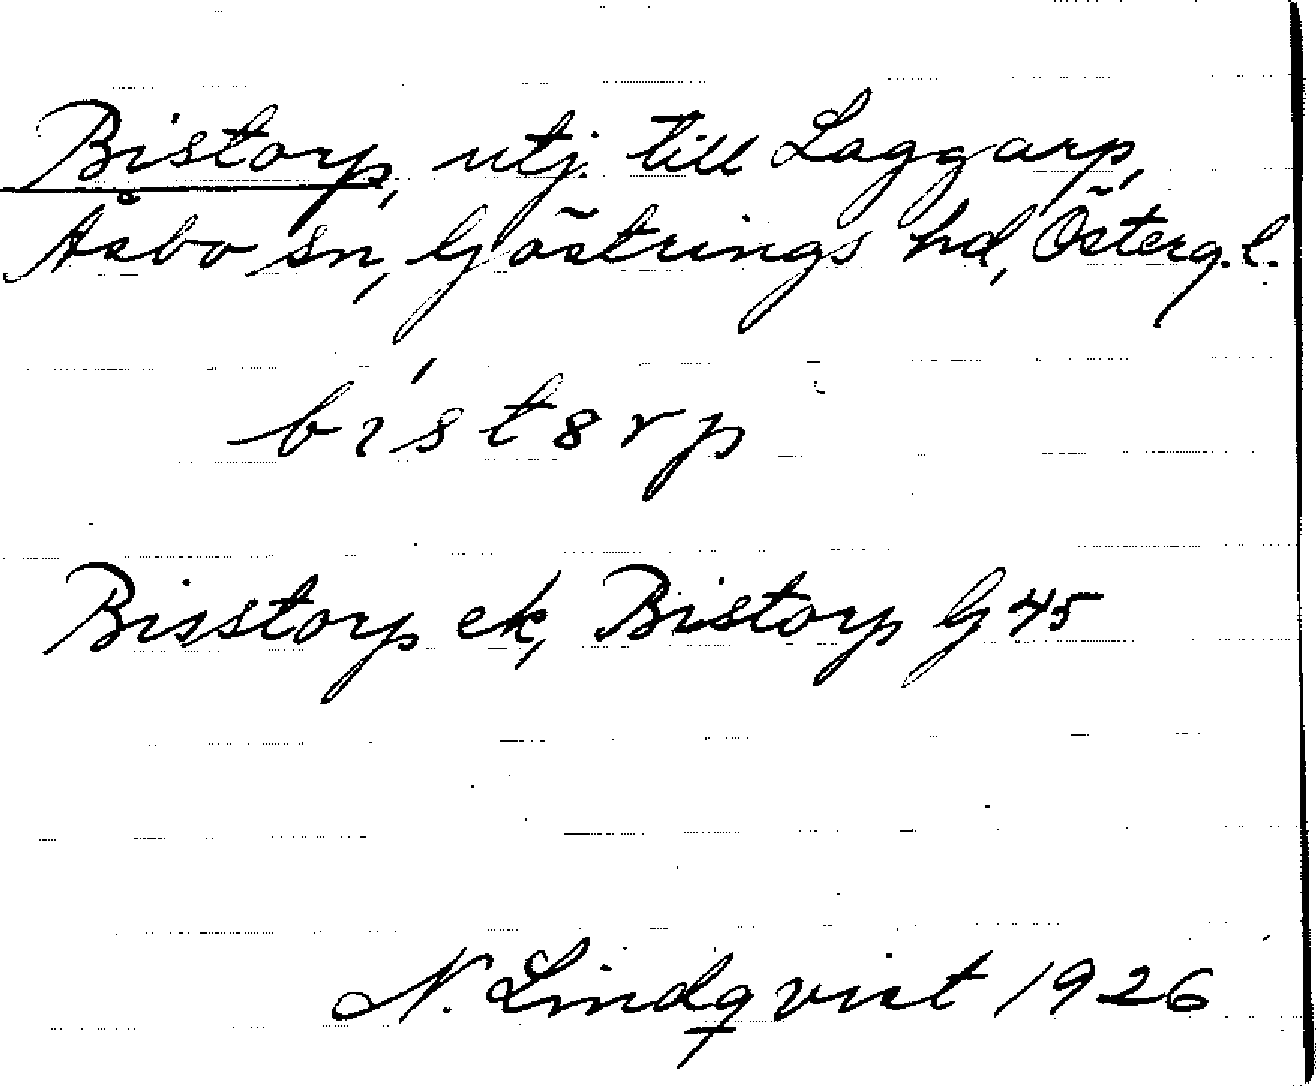 Bistorp, utj. till Laggarp,
Åsbo sn, Göstrings hd, Österg. l.
bístɜrp
Bisstorp ek, Bistorp G 45
N. Lindqvist 1926